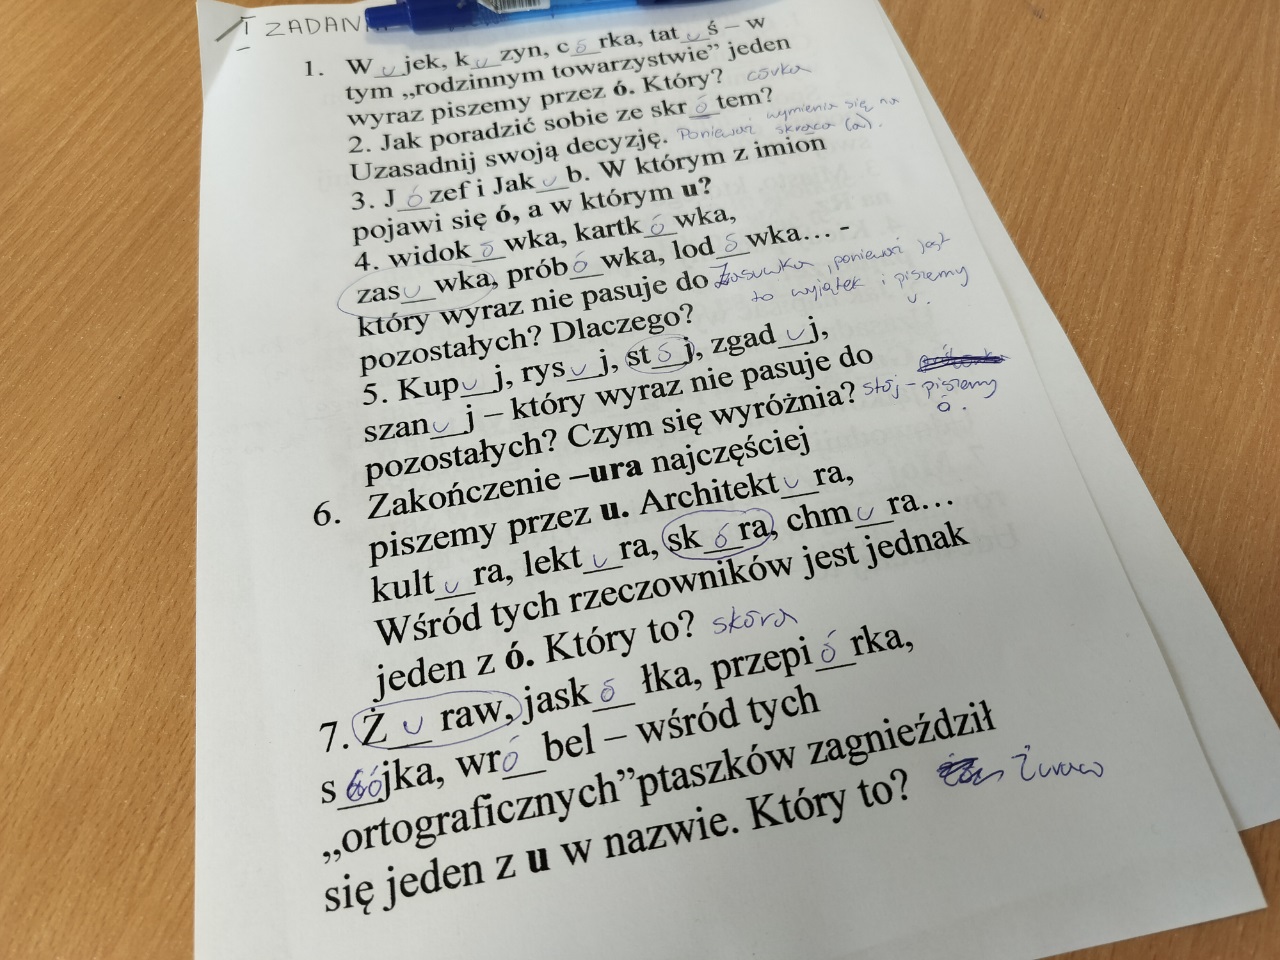 I ZADAN
1. W u jek, k u zyn, c ó rka, tat u ś – w
tym „rodzinnym towarzystwie” jeden
wyraz piszemy przez ó. Który? córka
2. Jak poradzić sobie ze skr ó tem?
Uzasadnij swoją decyzję. Ponieważ wymienia się na
skraca (a).
3. J ó zef i Jak u b. W którym z imion
pojawi się ó, a w którym u?
4. widok ó wka, kartk ó wka,
zas u wka, prób ó wka, lod ó wka… -
który wyraz nie pasuje do Zasuwka, ponieważ jest
to wyjątek i piszemy
u.
pozostałych? Dlaczego?
5. Kup u j, rys u j, st ó j, zgad u j,
szan u j – który wyraz nie pasuje do
pozostałych? Czym się wyróżnia? stój - piszemy
ó.
6. Zakończenie –ura najczęściej
piszemy przez u. Architekt u ra,
kult u ra, lekt u ra, sk ó ra, chm u ra…
Wśród tych rzeczowników jest jednak
jeden z ó. Który to? skóra
7. Ż u raw, jask ó łka, przepi ó rka,
s ó jka, wr ó bel – wśród tych
„ortograficznych”ptaszków zagnieździł
się jeden z u w nazwie. Który to? Żuraw